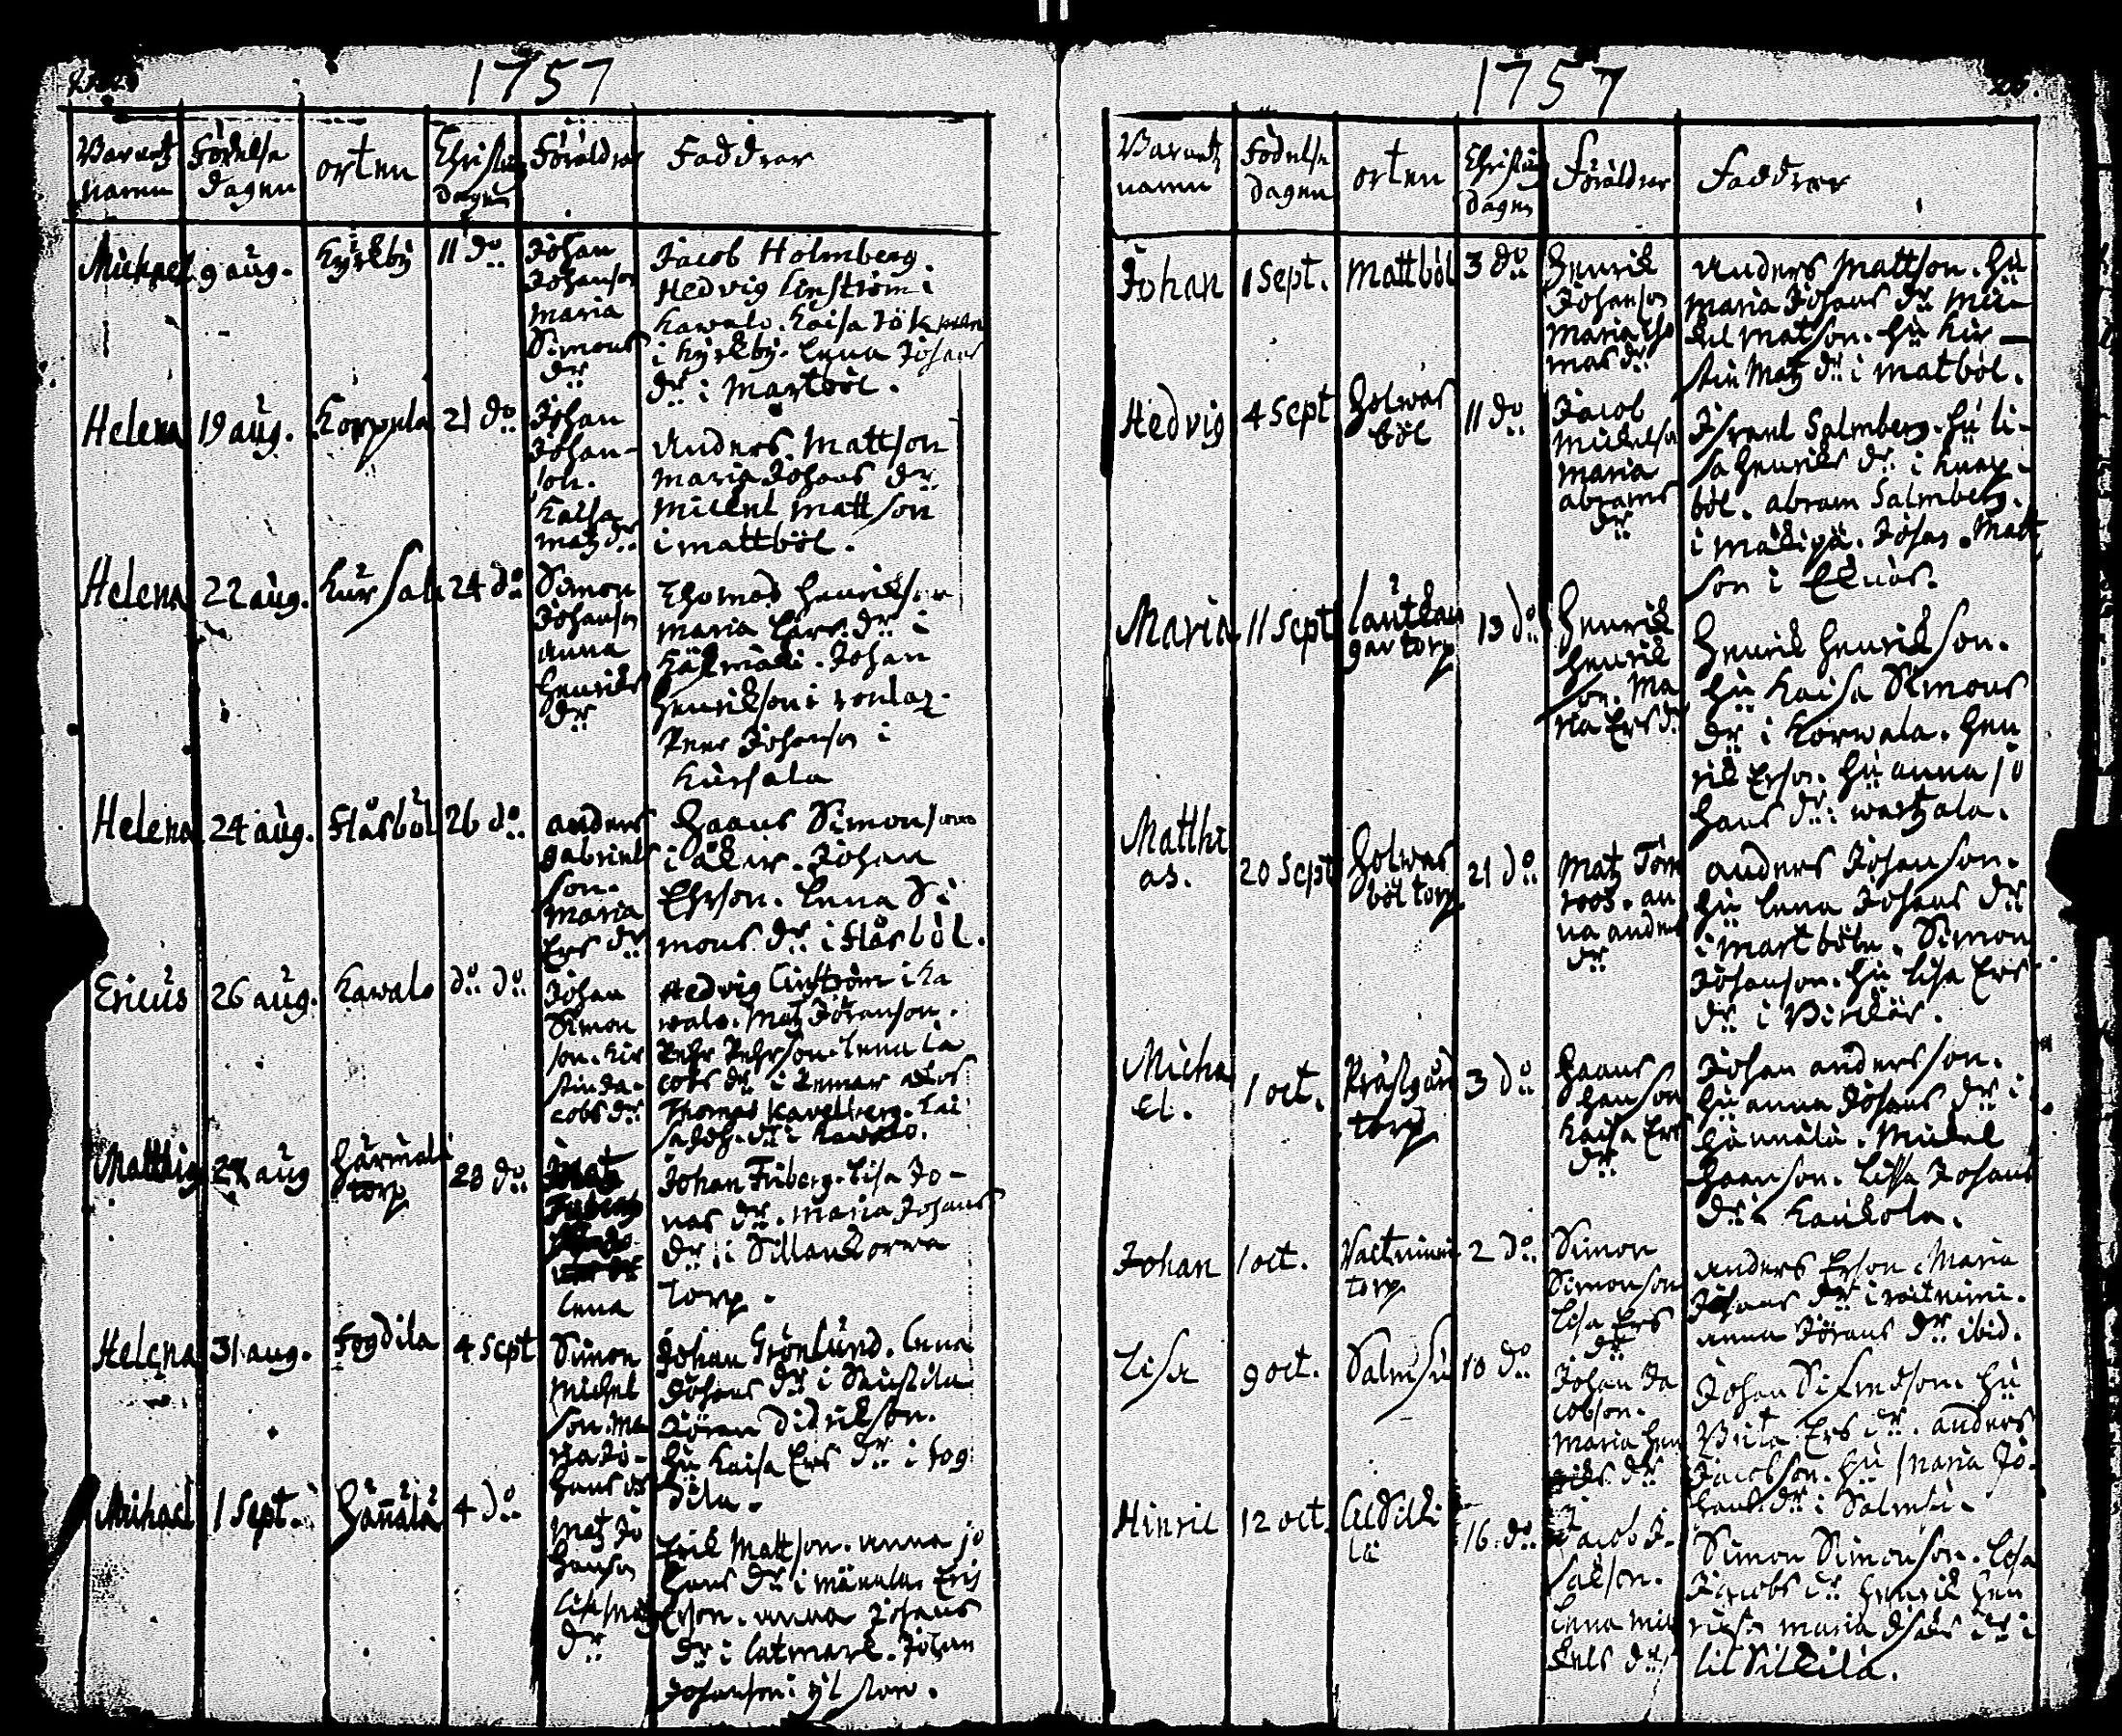 1757
Barnetz namn
Födelse dagen
orten
Christn dagen
Föräldrar
Faddrar
Michael 9 aug. Kyrkby 11 do
Johan
Johanson
Maria
Simons
dr
Jacob Holmberg.
Hedvig Linström i
Kawalo. Kaisa
i Kyrkby. Lena Johans
dr i Martböl.
Helena 19 aug. Korpula 21 do
Johan
Johan-
son.
Kaisa
Matz dr
Anders Mattson
Maria Johans dr
Mickel Mattson
i Mattböl.
Helena 22 aug. Kursala 24 do
Simon
Johanson
Anna
Henriks
dr
Thomas Henrikson
Maria Lars dr i
Johan
Henrikson i
Peer Johanson i
Kursala
Helena 24 aug. Flåsböl 26 do
Anders
Gabriels
son.
Maria
Ers dr
Haans Simonson
i Åker. Johan
Ehrson. Lena Si
mons dr i Flåsböl.
Ericus 26 aug. Kawalo do do
Johan
Simon
son. Kir
stin Ja-
cobs dr
Hedvig Linström i Ka
walo. Matz Jöranson.
Pehr Pehrson. Lena Ja
cobs dr i
Thomas Kavelberg. Kai
sa Joh. dr i Kawalo.
Matthias 27 aug Härmälä
torp 28 do
Matz
Friberg
Lena
Johan Friberg. Lisa Jo-
nas dr. Maria Johans
dr i Sillankorwa
torp.
Helena 31 aug. Fogdila 4 sept
Simon
Michel
son. Ma
ria Jo-
hans dr
Johan Grönlund. Lena
Johans dr i
Jöran Didrikson.
hu Kaisa Ers dr i Fog
dila.
Michael 1 sept. Hännälä 4 do
Matz Jo
hanson
Lisa Matz
dr
Erik Mattson. Anna Jo
hans dr i Erik
Erson. Anna Johans
dr i Latmark. Johan
Johanson i
1757
Barnetz namn
Födelse dagen
orten
Christn dagen
Föräldrar
Faddrar
Johan 1 sept. Mattböl 3 do
Henrik
Johanson
Maria Tho
mas dr
Anders Mattson. hu
Maria Johans dr. Mic-
kel Matson. hu Kir-
stin Matz dr i Matböl.
Hedvig 4 sept Holwas
böl 11 do
Jacob
Mickelson
Maria
Abrams
dr
Israel Salmberg. hu Li-
sa Henriks dr i Knap-
böl. Abram Salmberg.
i Mäkipä. Johan Matt
son i Eknäs.
Maria 11 sept Lautkan
gar torp 13 do
Henrik
Henrik
son. Ma
ria Ers dr
Henrik Henrikson.
hu Kaisa Simons
dr i Korwala. Hen
rik Erson. hu Anna Jo
hans dr i
Matthi
as. 20 sept Holwas
böl torp 21 do
Matz Törn
roos. An
na Anders
dr
Anders Johanson.
hu Lena Johans dr
i Martböle. Simon
Johanson. hu Lisa Ers
dr i
Micha
el. 1 oct. Prästgård
torp 3 do
Haans
Hanson
Kaisa Ers
dr
Johan Andersson.
hu Anna Johans dr i
Hännälä. Mickel
Haanson. Lissa Johans
dr i Kaukola.
Johan 1 oct.
torp 2 do
Simon
Simonson
Lisa Ers
dr
Anders Erson. Maria
Johans dr i
Anna Jörans dr ibid.
Lisa 9 oct. Salmsu 10 do
Johan Ja
cobson.
Maria Hen
riks dr
Johan Sifredson. hu
Brita Ers dr. Anders
Jacobson. hu Maria Jo-
hans dr i Salmsu.
Hinric 12 oct. Lilsilki
lä 16 do
Jacob I-
sakson.
Lena Mic
kels dr
Simon Simonson. Lisa
Jacobs dr Henrik Hen
rikson Maria Isaks dr i
Lilsilkilä.